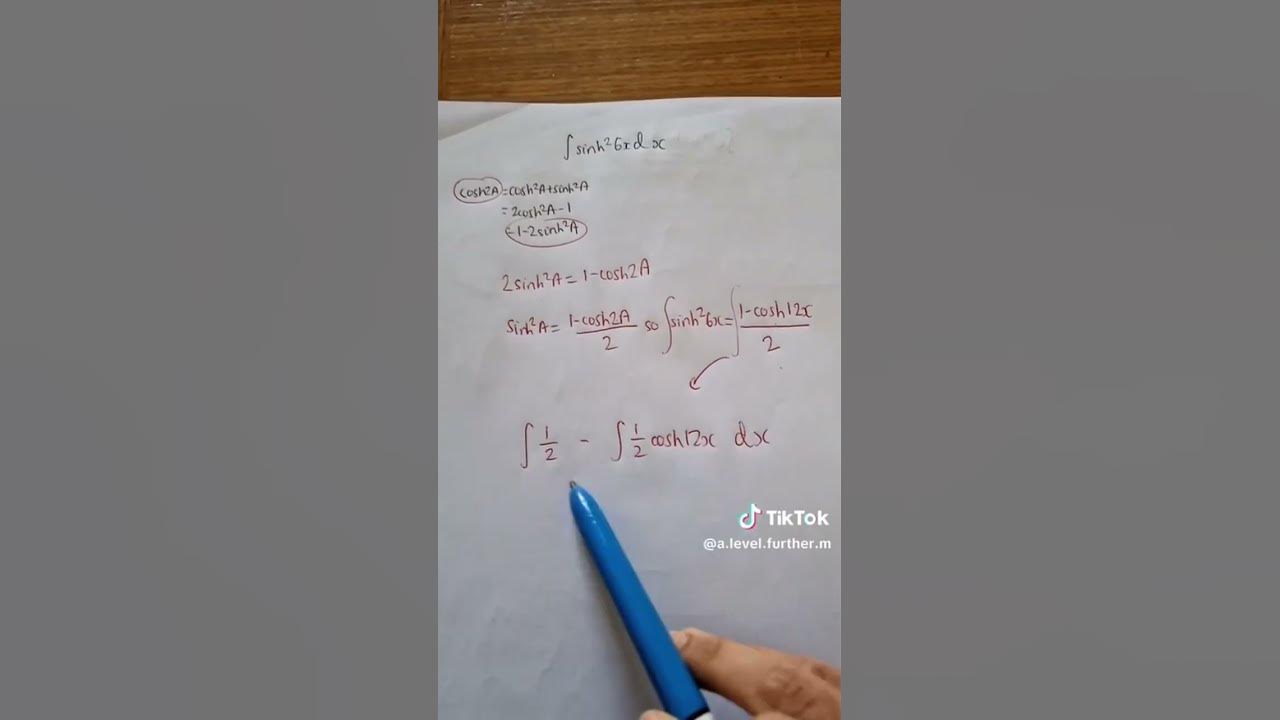 ∫sinh²6x dx
cosh2A = cosh²A+sinh²A
= 2cosh²A-1
= 1-2sinh²A
2sinh²A = 1-cosh2A
sinh²A = 1-cosh2A/2 so ∫sinh²6x = ∫1-cosh12x/2
∫1/2 - ∫1/2 cosh12x dx
TikTok
@a.level.further.m